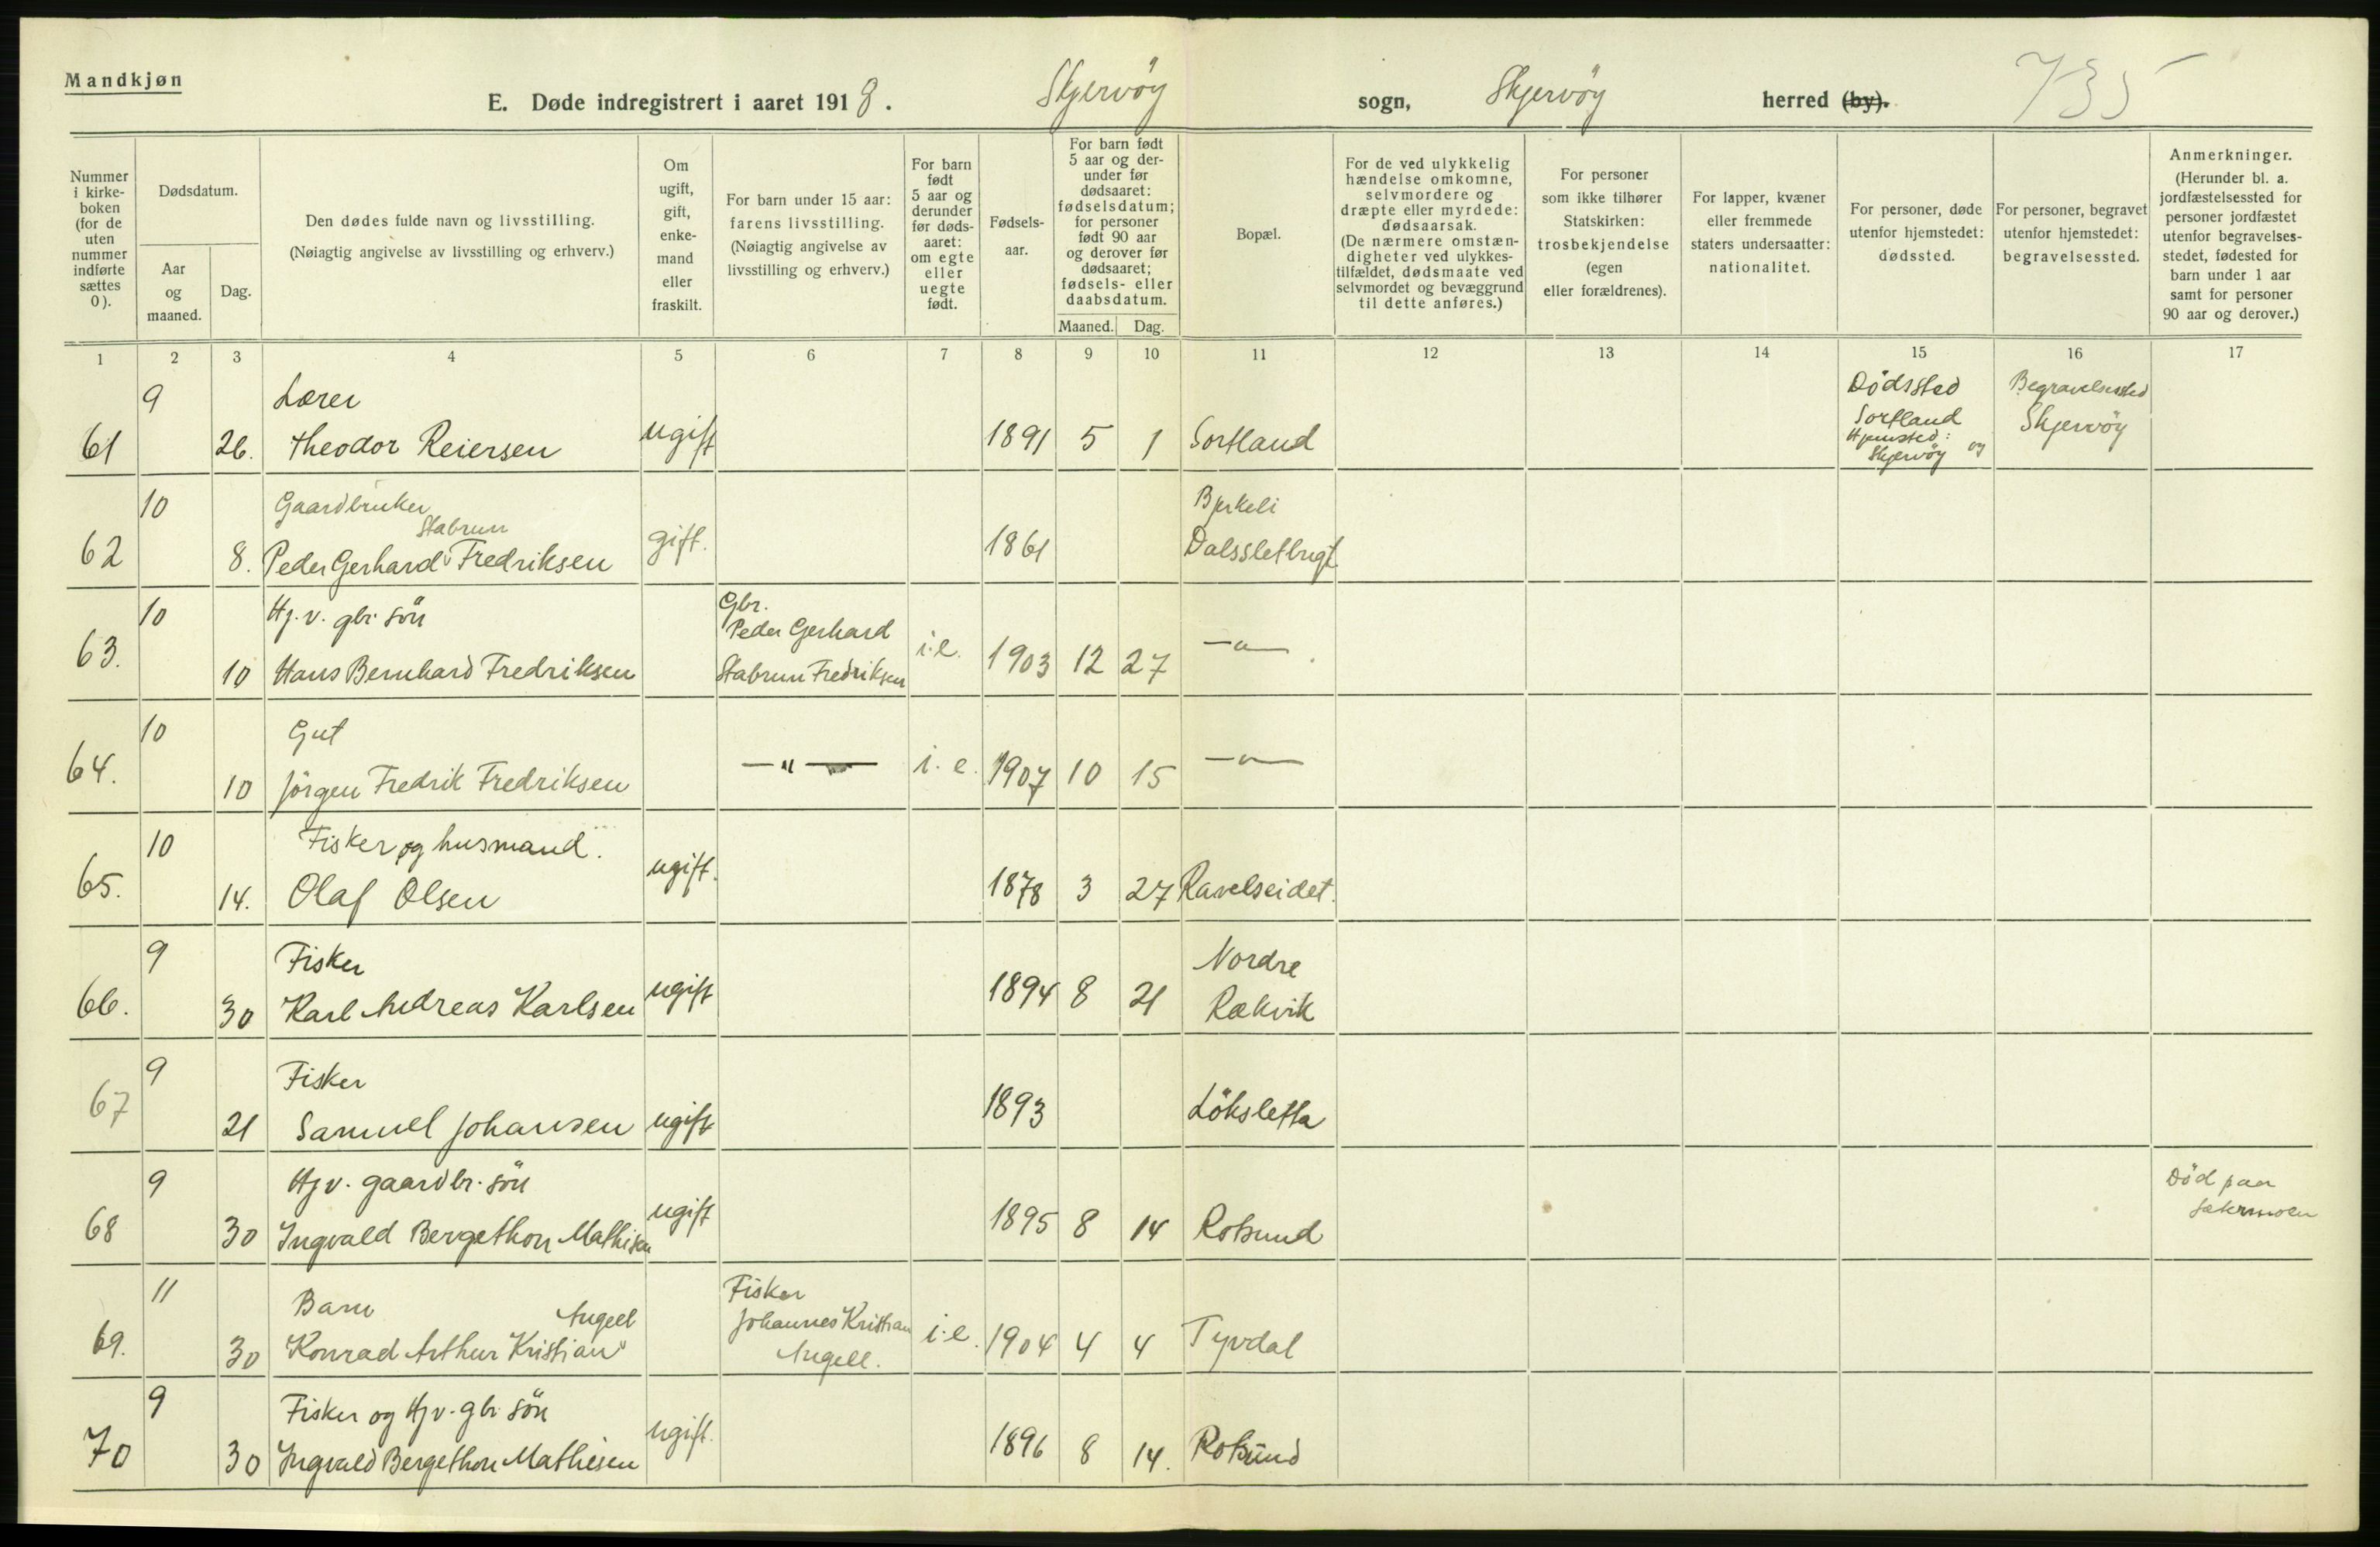 Mandkjøn
E. Døde indregistrert i aaret 1918. Skjervöy sogn, Skjervöy herred (by). 735
Nummer i kirkeboken (for de uten nummer indførte sættes 0).
Dødsdatum.
Aar og maaned.
Dag.
Den dødes fulde navn og livsstilling.
(Nøiagtig angivelse av livsstilling og erhverv.)
Om ugift, gift, enkemand eller fraskilt.
For barn under 15 aar: farens livsstilling.
(Nøiagtig angivelse av livsstilling og erhverv.)
For barn født 5 aar og derunder før dødsaaret: om egte eller uegte født.
Fødselsaar.
For barn født 5 aar og derunder før dødsaaret: fødselsdatum; for personer født 90 aar og derover før dødsaaret; fødsels- eller daabsdatum.
Maaned. Dag.
Bopæl.
For de ved ulykkelig hændelse omkomne, selvmordere og dræpte eller myrdede: dødsaarsak.
(De nærmere omstændigheter ved ulykkestilfældet, dødsmaate ved selvmordet og bevæggrund til dette anføres.)
For personer som ikke tilhører Statskirken: trosbekjendelse (egen eller forældrenes).
For lapper, kvæner eller fremmede staters undersaatter: nationalitet.
For personer, døde utenfor hjemstedet: dødssted.
For personer, begravet utenfor hjemstedet: begravelsessted.
Anmerkninger.
(Herunder bl. a. jordfæstelsessted for personer jordfæstet utenfor begravelsesstedet, fødested for barn under 1 aar samt for personer 90 aar og derover.)
1 2 3 4 5 6 7 8 9 10 11 12 13 14 15 16 17
9 Lærer Dödssted Begravelsessted
61 26. Theodor Reiersen ugift 1891 5 1 Sortland Sortland Skjervöy
Hjemsted: Skjervöy og
10 Gaardbruker Stabrun Bjrkeli
62 8. Peder Gerhard Fredriksen gift. 1861 Dalssletbugt
10 Hj. v. gbr. sön Gbr. Peder Gerhard
63. 10 Hans Bernhard Fredriksen Stabrun Fredriksen i.e. 1903 12 27 — " —
10 Gut
64. 10 Jörgen Fredrik Fredriksen — " — i. e. 1907 10 15 — " —
10 Fisker og husmand.
65. 14. Olaf Olsen ugift. 1878 3 27 Ravelseidet.
9 Fisker Nordre
66. 30 Karl Andreas Karlsen ugift 1894 8 21 Rækvik
9 Fisker
67 21 Samuel Johansen ugift 1893 Löksletta
9 Hj v. gaardbr. sön Död paa
68 30 Ingvald Bergethon Mathisen ugift 1895 8 14 Rotsund
11 Barn Angell Fisker Johannes Kristian
69. 30 Konrad Arthur Kristian Angell. i.e. 1904 4 4 Tyvdal
9 Fisker og Hjv. gbr sön
70 30 Ingvald Bergethon Mathisen ugift. 1896 8 14. Rotsund